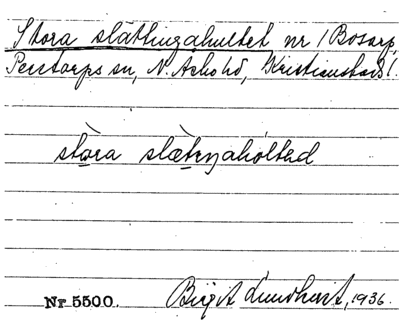 Stora slättingahultet nr 1 Bosarp,
Perstorps sn, N. Åsbo hd, Kristianstads l.
stora slætiŋahòltəd
Nr 5500. Birgit Lundqvist, 1936.